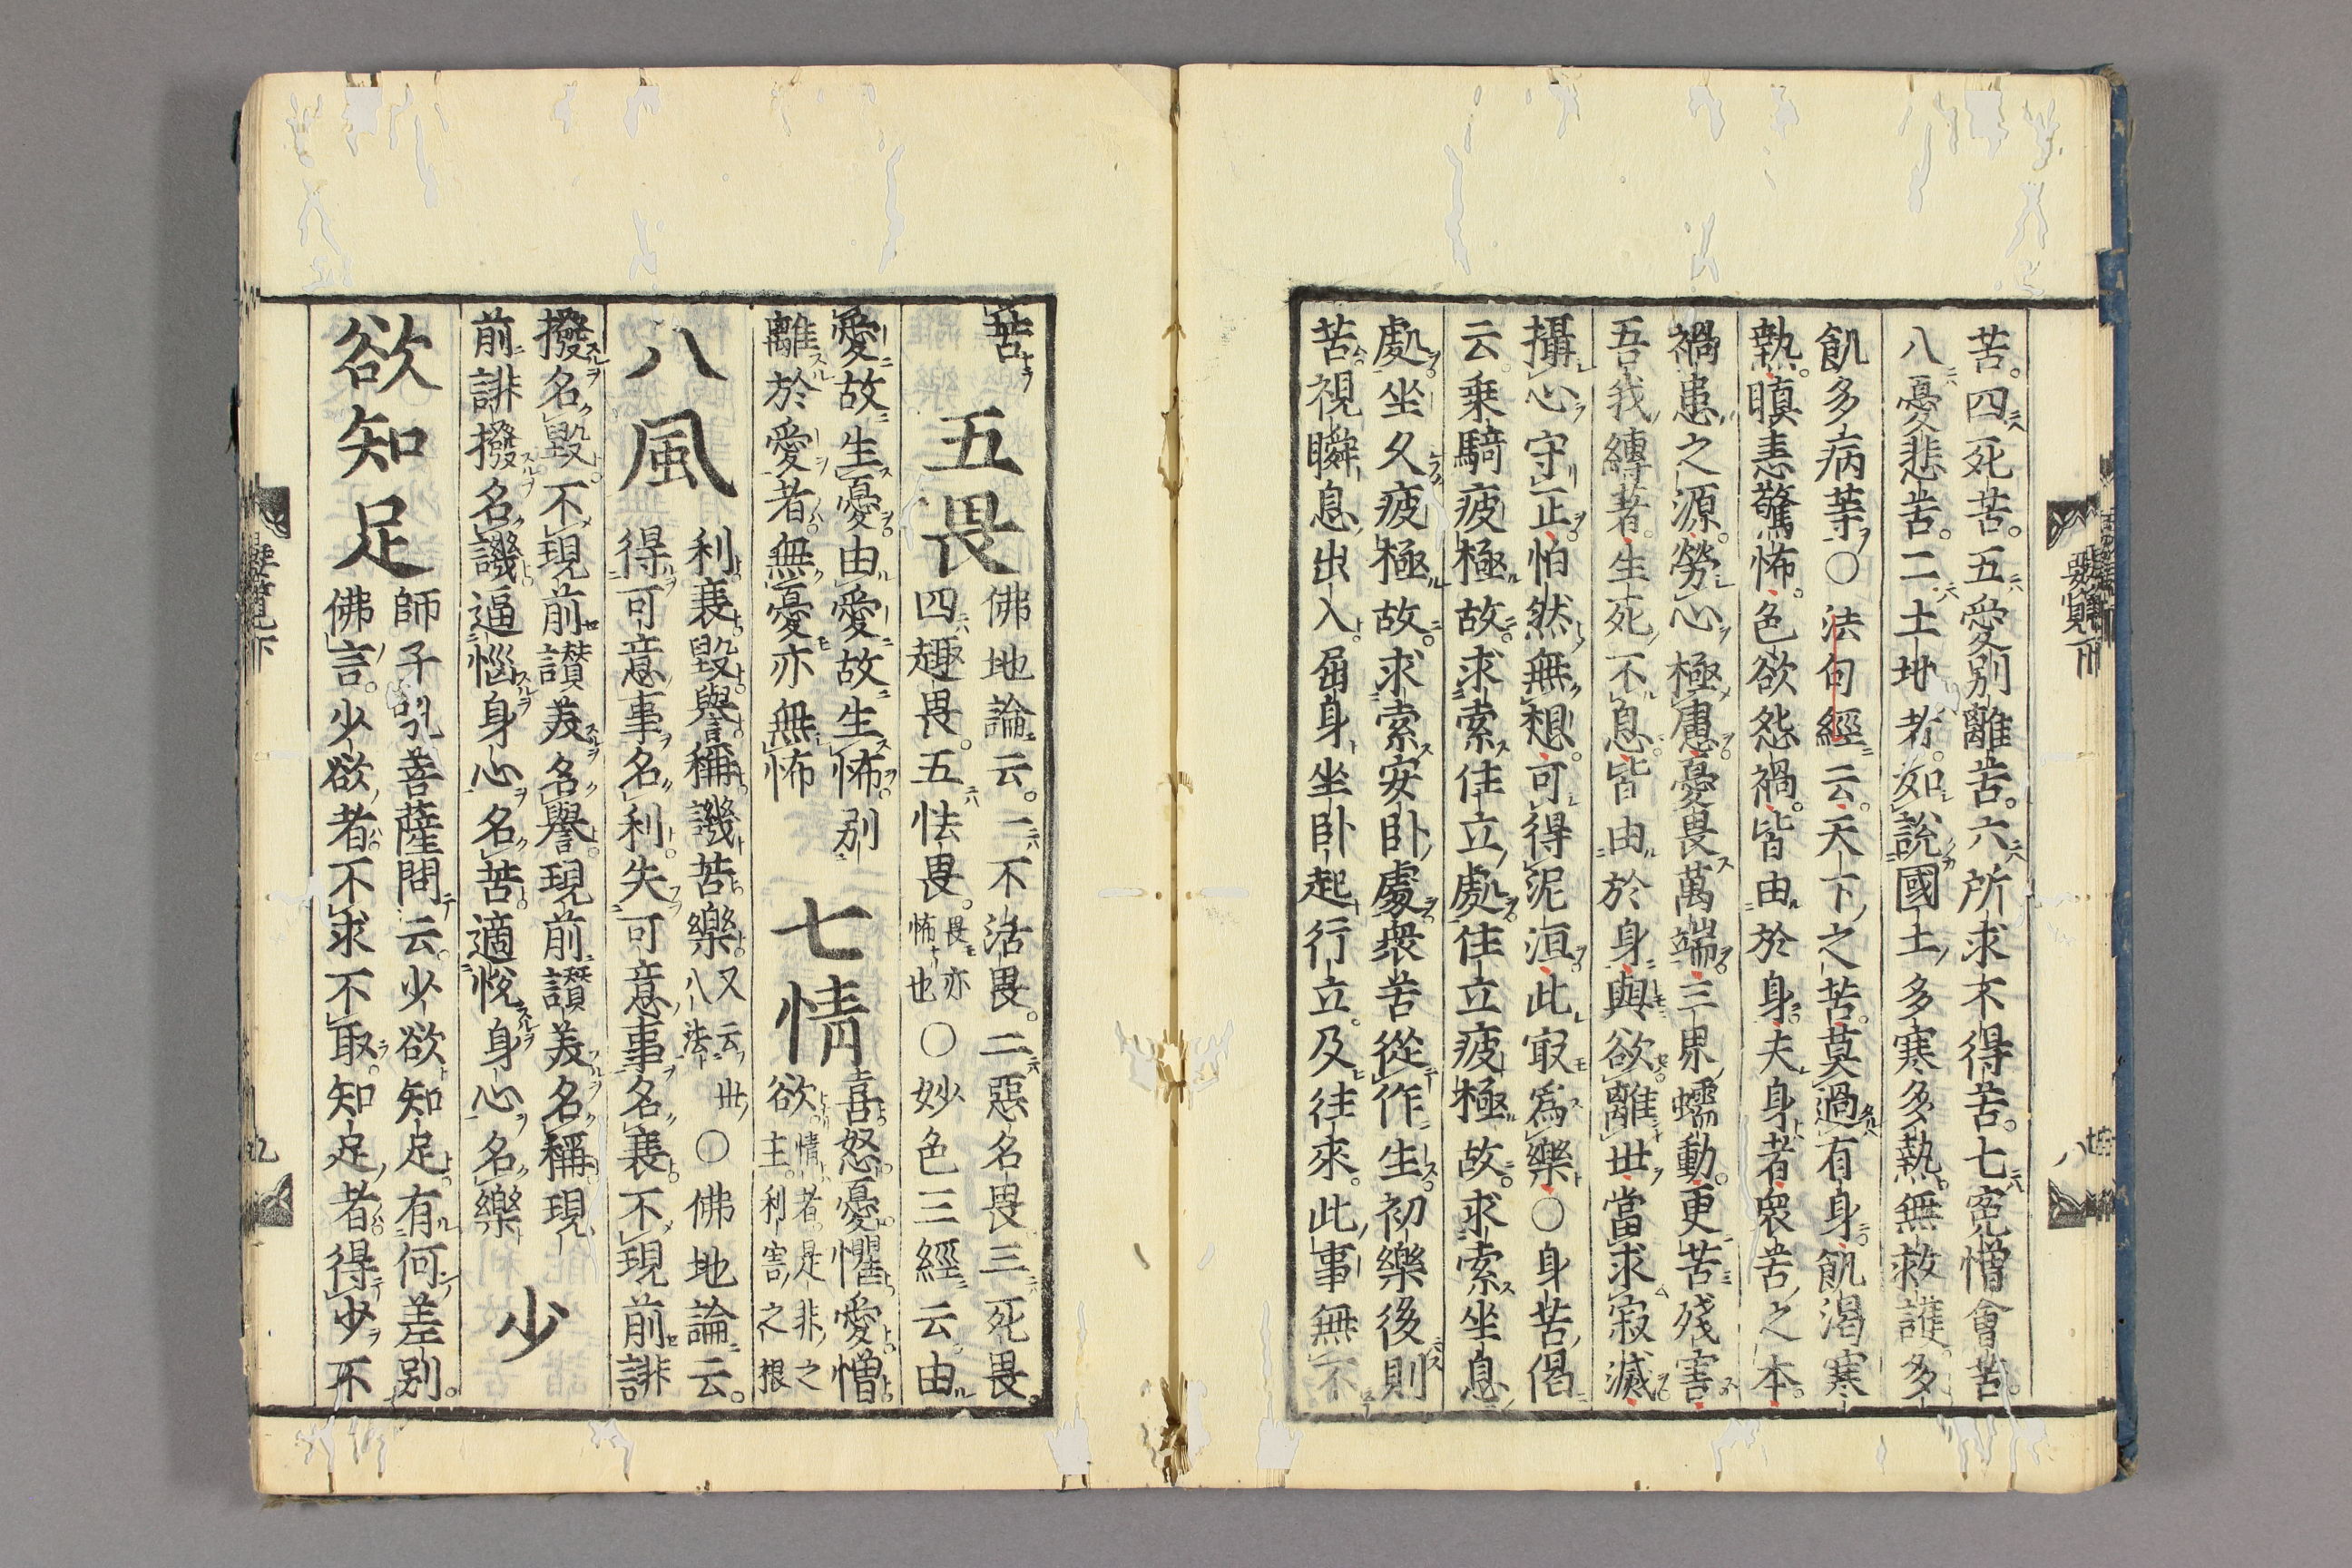 苦。四死苦。五愛別離苦。六所求不得苦。七寃憎會苦。
八憂悲苦。二土地者。如說國土多寒多熱無救護。多
飢多病等○法句經云。天下之苦。莫過有身。飢渴寒
熱。瞋恚驚怖。色欲怨禍。皆由於身。夫身者衆苦之本。
禍患之源。勞心極慮。憂畏萬端。三界蠕動。更苦殘害
吾我縛著。生死不息。皆由於身。與欲離世。當求寂滅。
攝心守正。怕然無想。可得泥洹。此寂爲樂○身苦偈
云。乗騎疲極故。求索住立處。住立疲極故。求索坐息
處。坐久疲極故。求索安卧處。衆苦從作生。初樂後則
苦。視瞬息出入。屈身坐卧起行立。及往來。此事無不
苦
五畏
佛地論云。一不活畏。二惡名畏三死畏。
四趣畏。五怯畏。
畏亦
怖也
○妙色三經云由
愛故生憂。由愛故生怖。別
離於愛者。無憂亦無怖
七情
喜怒憂懼愛憎
欲。
情者。是非之
主。利害之根
八風
利衰毀譽稱譏苦樂。
又云世
八法
○佛地論云。
得可意事名利失可意事名衰不現前誹
撥名毀。不現前讃美名譽。現前讃美名稱現
前誹撥名譏逼惱身心名苦。適悅身心名樂
少
欲知足
師子吼菩薩問云。少欲知足。有何差別。
佛言。少欲者。不求不取。知足者。得少不